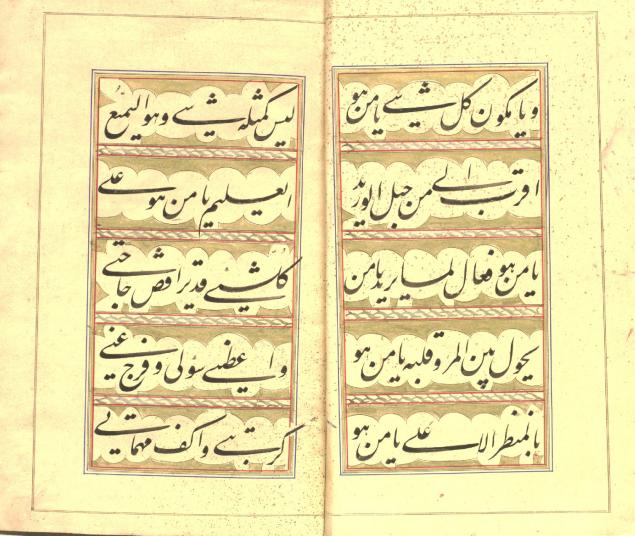 و یا مکون کل شیء یا من هو
اقرب الی من حبل الورید
یا من هو فعال لما یرید یا من
یحول بین المرء و قلبه یا من هو
بالمنظر الاعلی یا من هو
لیس کمثله شیء و هو السمیع
العلیم یا من هو علی
کلشیء قدیر اقض حاجتی
و اعطنی سؤلی و فرج عنی
کربتی و اکف مهماتی